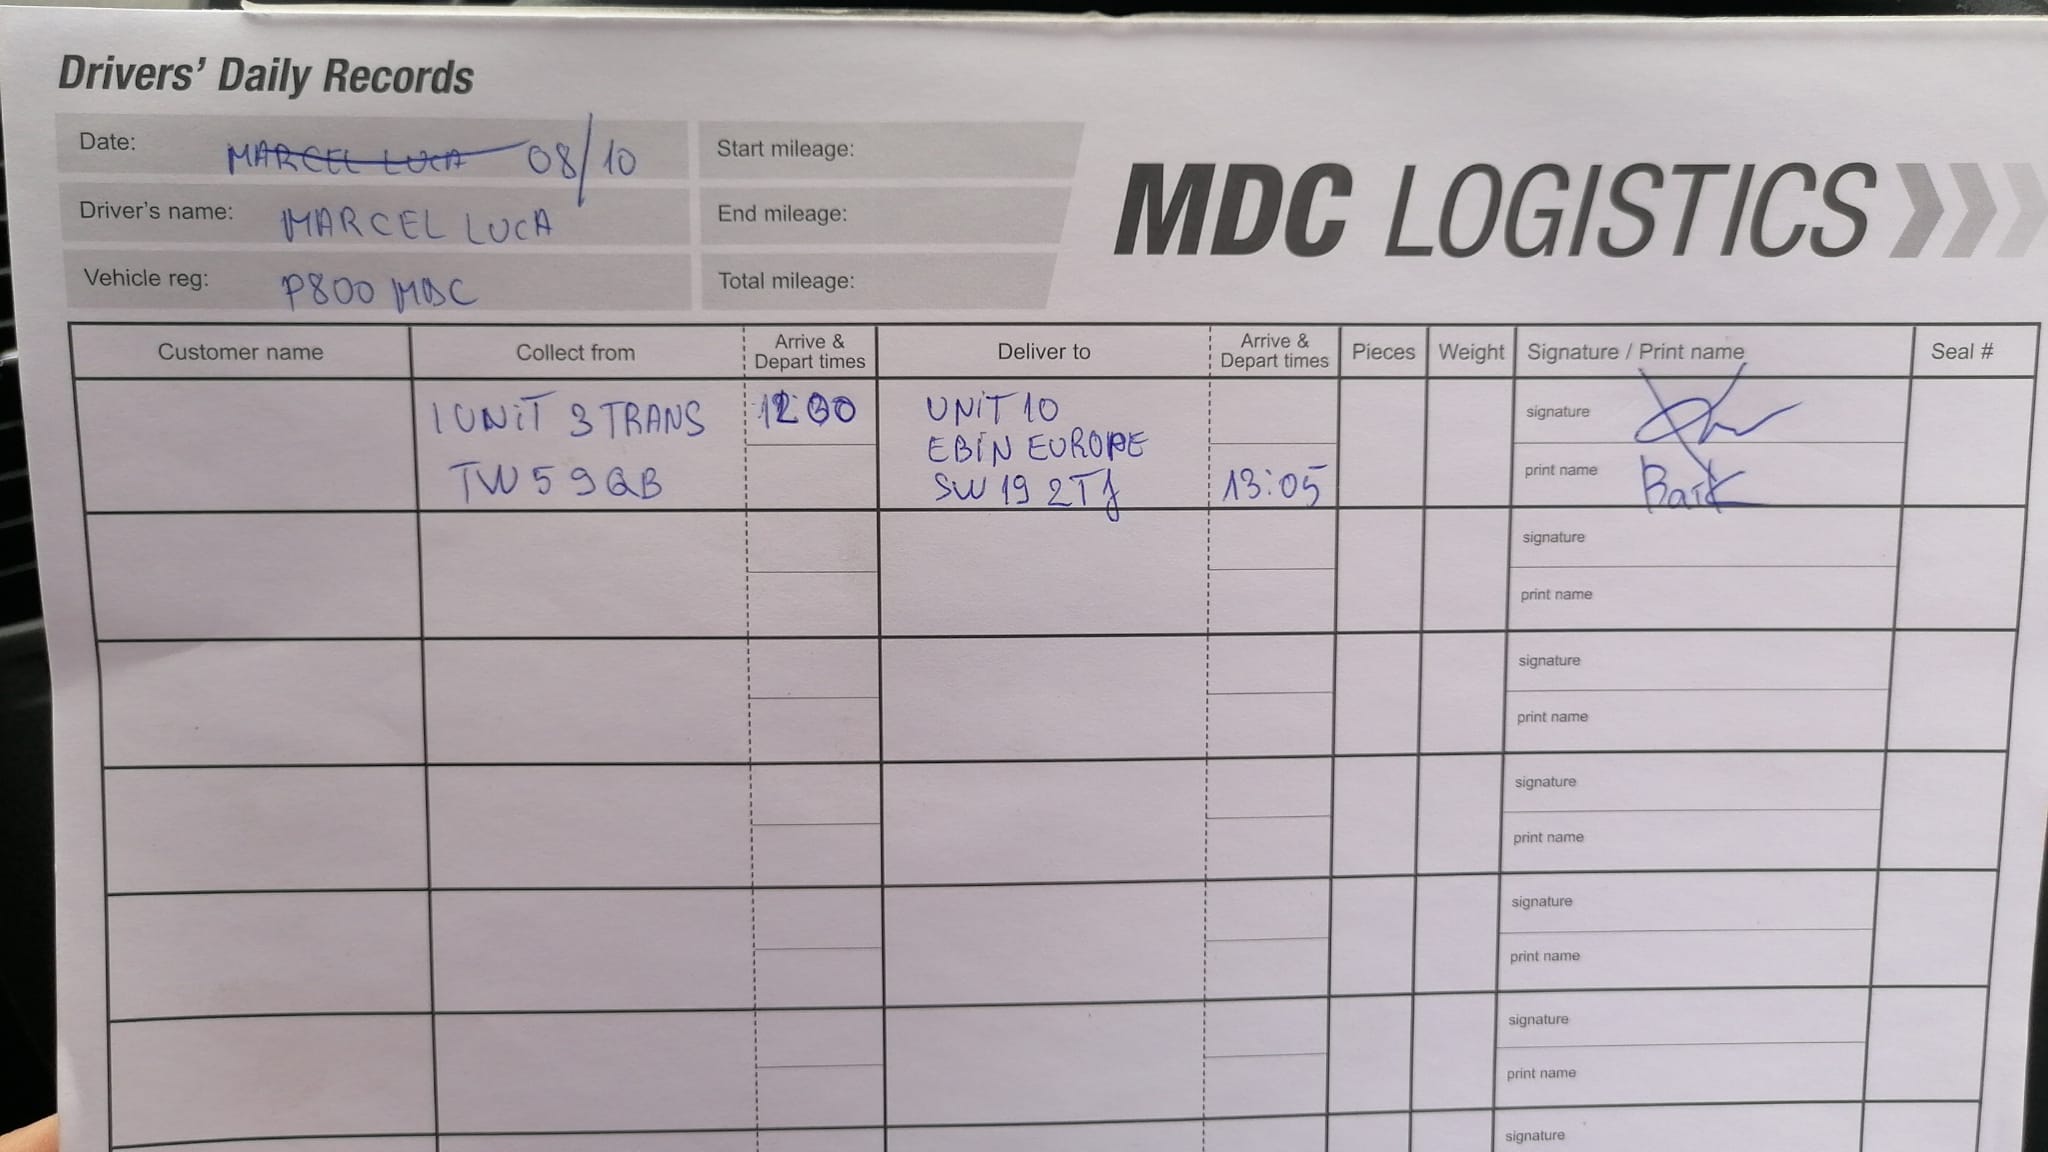 Drivers' Daily Records
Date: MARCEL LUCA 08/10
Driver's name: MARCEL LUCA
Vehicle reg: P800 MDC
Start mileage:
End mileage:
Total mileage:
MDC LOGISTICS
Customer name Collect from Arrive & Depart times Deliver to Arrive & Depart times Pieces Weight Signature / Print name Seal #
1 UNIT 3 TRANS
TW5 9QB
UNIT 10
EBIN EUROPE
SW19 2TJ
13:05
signature
print name
signature
print name
signature
print name
signature
print name
signature
print name
signature
print name
signature